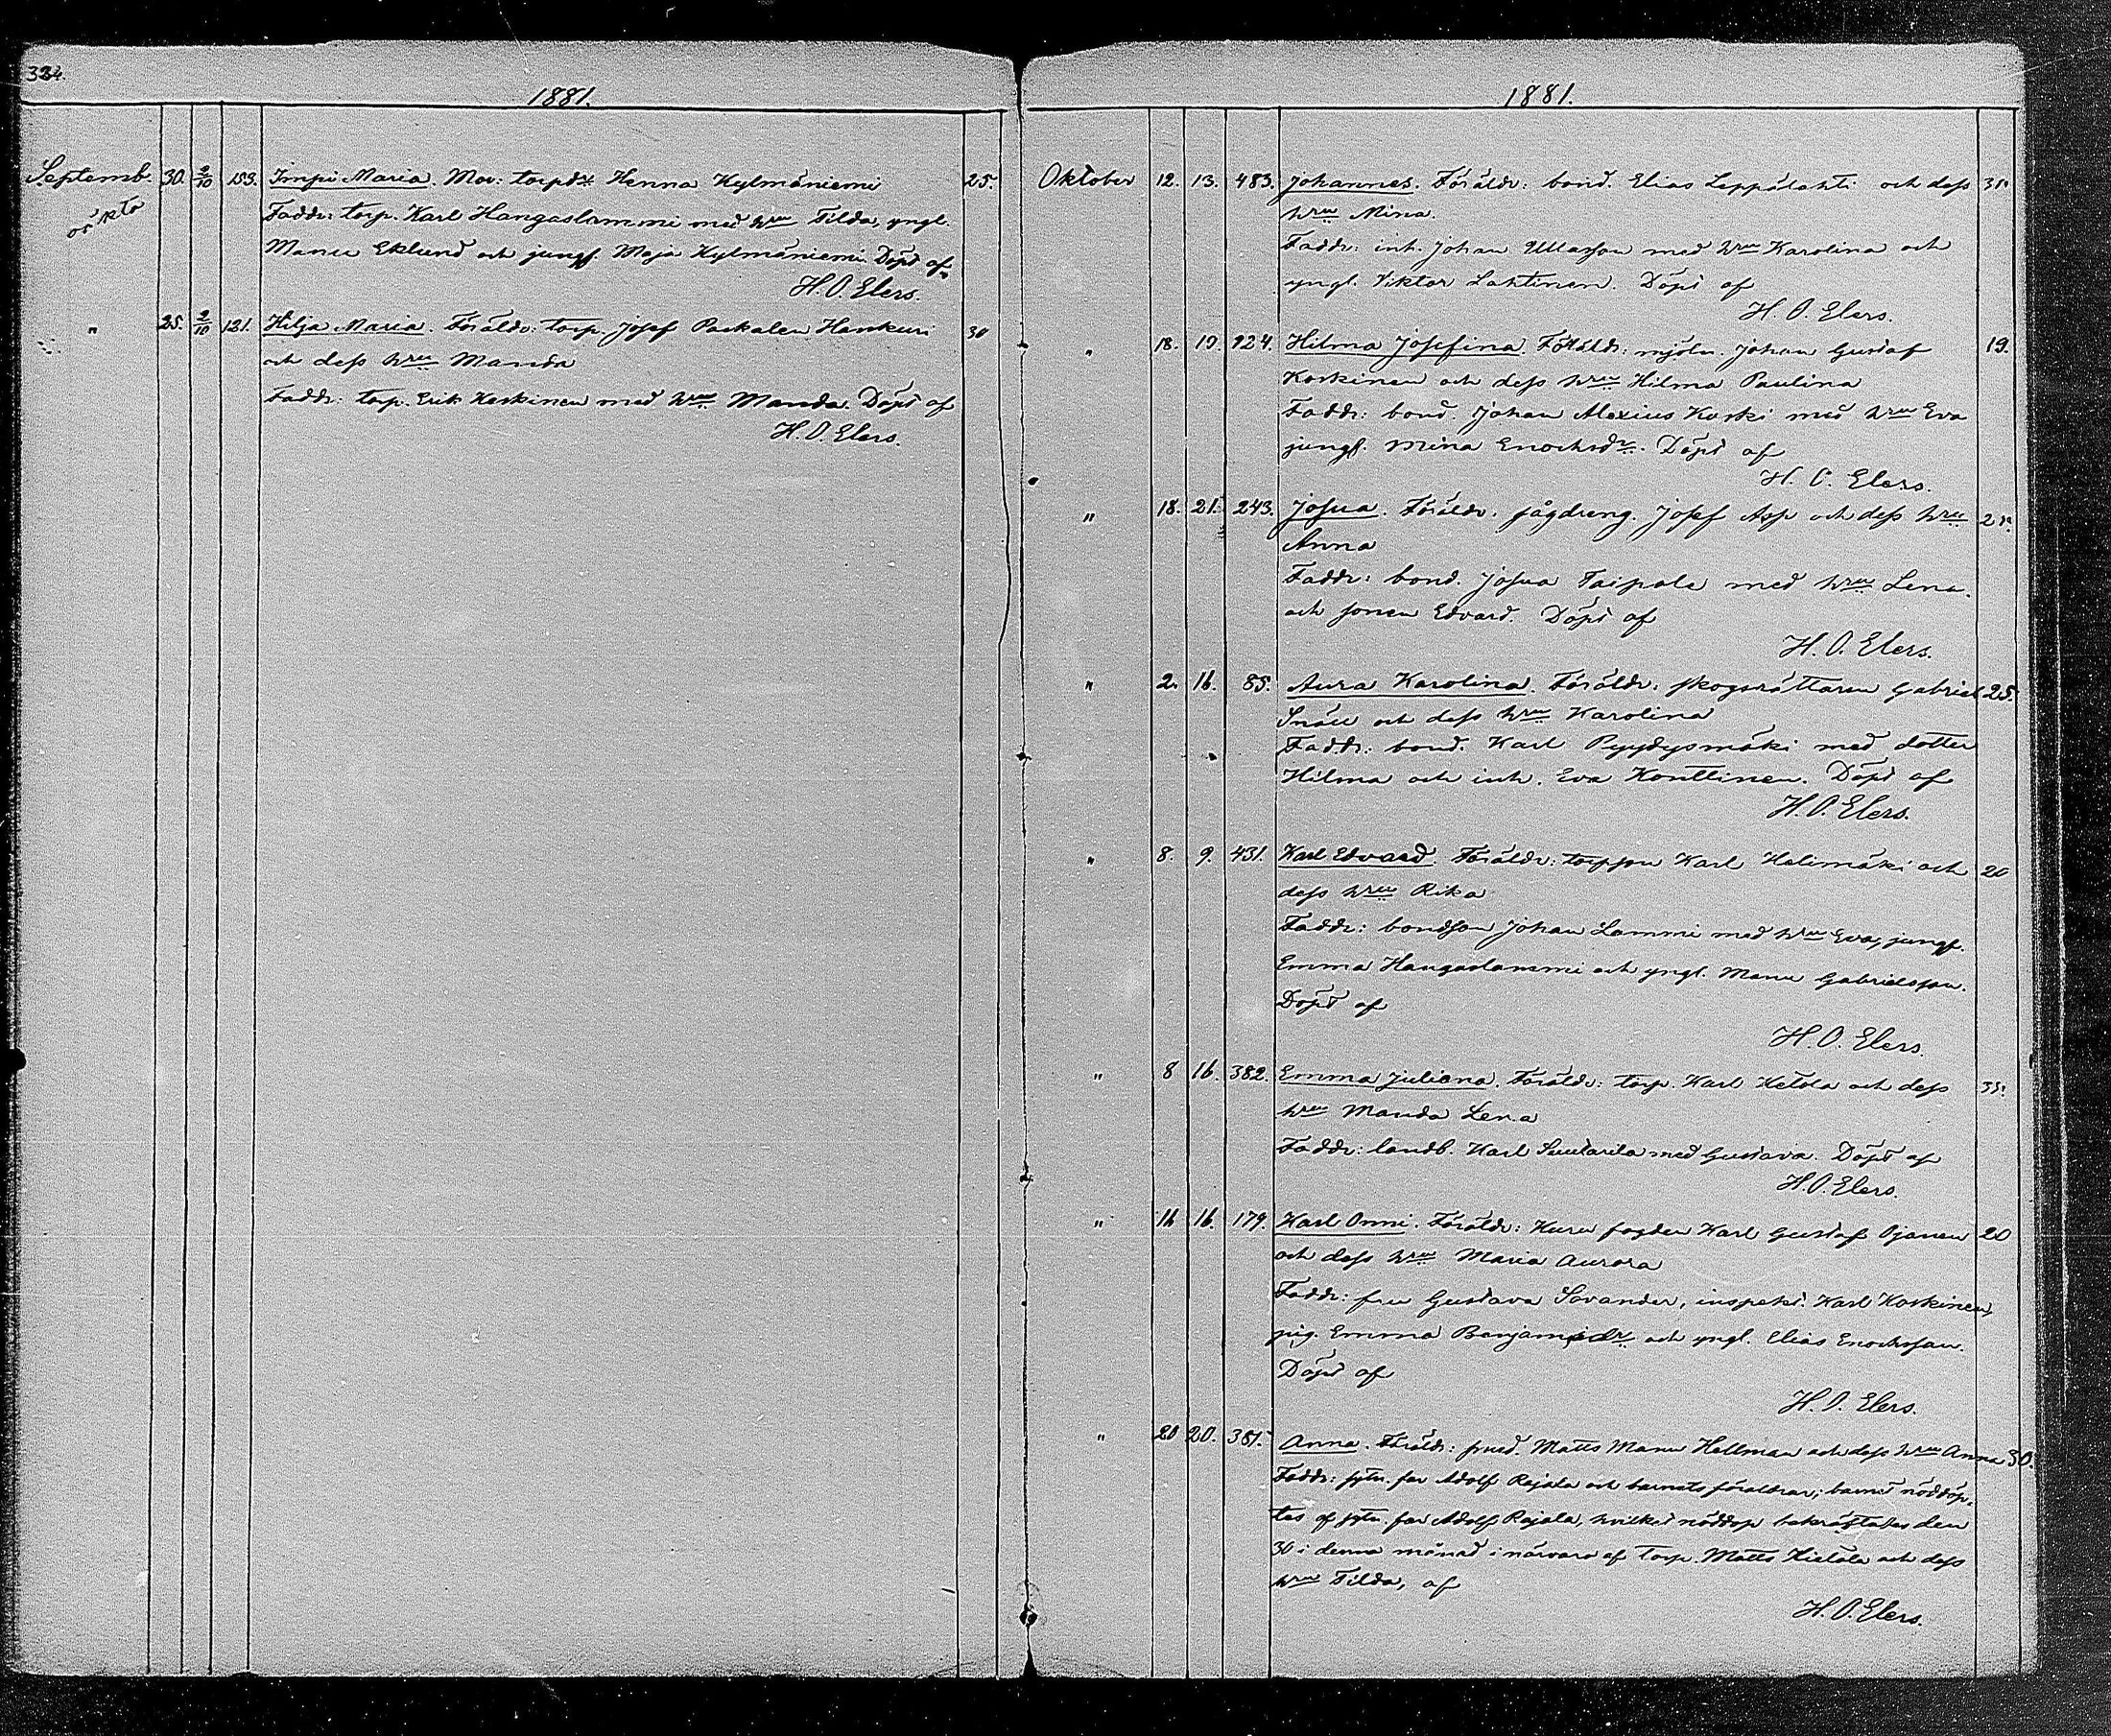 334.
1881.
Septemb. 30. 2/10 153. Impi Maria. Mor: torpdr Henna Kylmäniemi 25.
oä kta
Faddr: torp. Karl Hangaslammi med hru Tilda, yngl.
Manu Eklund och jungf. Maja Kylmäniemi. Döpt af
H. O. Elers.
" 25. 2/10 121. Hilja Maria. Föräldr: torp. Josef Paskalen Hankuri 30
och dess hru Manda
Faddr: torp. Erik Keskinen med hru Manda. Döpt af
H. O. Elers.
1881.
Oktober 12. 13. 483. Johannes. Föräldr: bond. Elias Leppälahti och dess 31.
hru Mina.
Faddr: inh. Johan Ullasson med hru Karolina och
yngl. Viktor Lahtinen. Döpt af
H. O. Elers.
" 18. 19. 124. Hilma Josefina. Föräldr: mjöln. Johan Gustaf 19.
Koskinen och dess hru Hilma Paulina
Faddr: bond. Johan Alexius Koski med hru Eva
jungf. Mina Enochsdr. Döpt af
H. O. Elers.
" 18. 21. 243. Josua. Föräldr. sågdreng. Josef Asp och dess hru 21.
Anna
Faddr: bond. Josua Taipale med hru Lena.
och sonen Edvard. Döpt af
H. O. Elers.
" 2. 16. 85. Aura Karolina. Föräldr: skogsrättaren Gabriel 25.
Snäll och dess hru Karolina
Faddr: bond. Karl Pyydysmäki med dotter
Hilma och inh. Eva Konttinen. Döpt af
H. O. Elers.
" 8. 9. 431. Karl Edvard. Föräldr: torpson Karl Halimäki och 20
dess hru Rika
Faddr: bondson Johan Lammi med hru Eva, jungf.
Emma Hangaslammi och yngl. Manu Gabrielsson.
Döpt af
H. O. Elers.
" 8 16. 382. Emma Juliana. Föräldr: torp. Karl Ketola och dess 35.
hru Manda Lena
Faddr: landb. Karl Suutarila med Gustava. Döpt af
H. O. Elers.
" 16 16. 179. Karl Onni. Föräldr: Kuru fogden Karl Gustaf Ojanen 20
och dess hru Maria Aurora
Faddr: fru Gustava Savander, inspekt. Karl Koskinen,
pig. Emma Benjamsdr och yngl. Elias Enochsson.
Döpt af
H. O. Elers.
" 20 20. 381. Anna. Föräldr: smed. Matts Manu Hellman och dess hru Anna 30.
Faddr: sytn. far Adolf Rajala och barnets föräldrar; barnet nöddöp-
tes af sytn. far Adolf Rajala, hvilket nöddop bekräftades den
30 i denna månad i närvaro af torp. Matts Hietola och dess
hru Tilda, af
H. O. Elers.